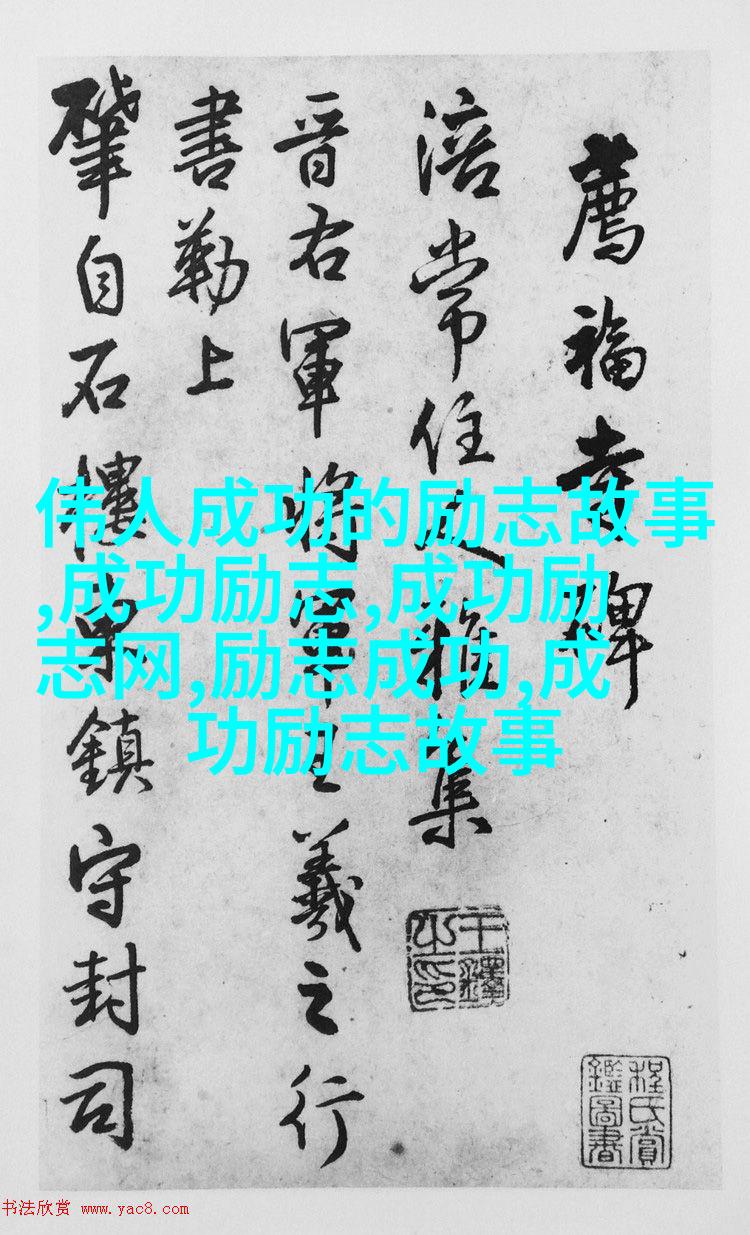 薦福寺碑
涪常住定雅集
晋右軍将軍王羲之行
書勒上
肇自石樓東鎮守封司
王鐸之印
程氏賞鑑圖書
伟人成功的励志故事
,成功励志,成功励
志网,励志成功,成
功励志故事
书法欣赏 www.yac8.com